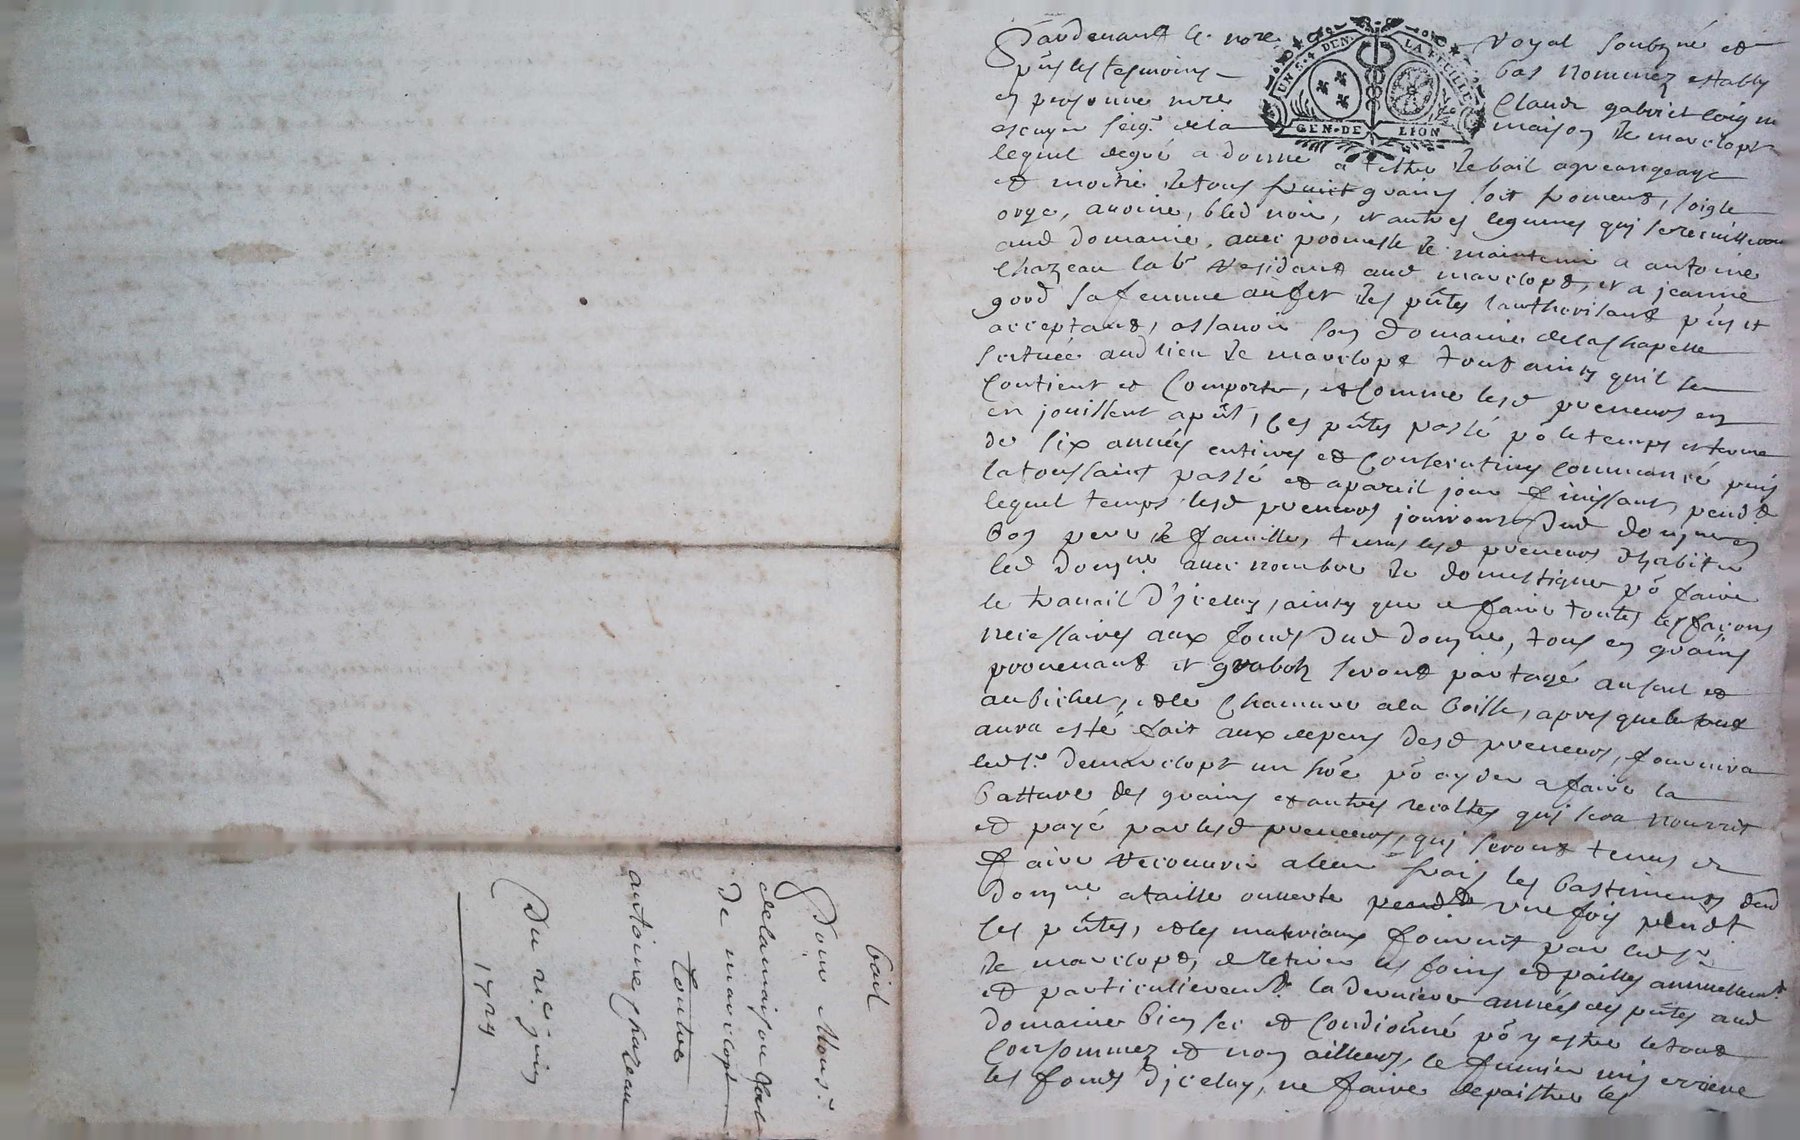 Pardevant le no.re royal soubzné et
p.ns les tesmoins bas nommez estably
en personne no.re Claude gabriel
escuyer seig.r de la maison de marclopt
lequel degré a donné a tiltre de bail a grangeage
et moitié de tous fruict grains soit froment, soigle
orge, avoine, bled noir, et autres legumes qui se recuilleron
aud domaine, avec promesse de maintenir a antoine
Chazeau lab.r residant aud marclopt, et a jeanne
gord sa femme
acceptant, assavoir son domaine de la chapelle
scituée aud lieu de marclopt tout ainsy qu'il se
Contient et Comporte, et Comme lesd preneurs en
en jouissent apñt, Ces pñtes passé pō le temps et terme
de six années entieres et Consecutives Commancé puis
la toussaint passé et a pareil jour finissant, pend.t
lequel temps lesd preneurs jouiront dud domaine en
bon pere de famille, tenus lesd preneurs d'habiter
led dom.ne avec nombre de domestique pō faire
le travail d'jceluy, ainsy que de faire toutes les façons
necessaires aux fonds dud dom.ne, tous en grains
provenant et seront partagé
au bichet, et le Chanvre a la , apres que le tout
aura esté fait aux depens desd preneurs, fournira
led s.r de marclopt un pō ayder a faire la
batture des grains et autres recoltes qui sera nourrit
et payé par lesd preneurs, qui seront tenus de
faire recouvrir a leur frais les bastiments dud
dom.ne a taille ouverte une fois pendt
les pñtes, et les materiaux fournit par led s.r
de marclopt, de retirer les foins et pailles annuellem.t
et particulierem.t la derniere années des pñtes aud
domaine bien sec et Condiōnné pō y estre le tout
Consommez et non ailleurs, le fumier mis
les fonds d'jceluy, ne faire depaistre les
bail
Pour Mons.r
de la maison
de marclopt
Contre
antoine chazeau
Du
1724